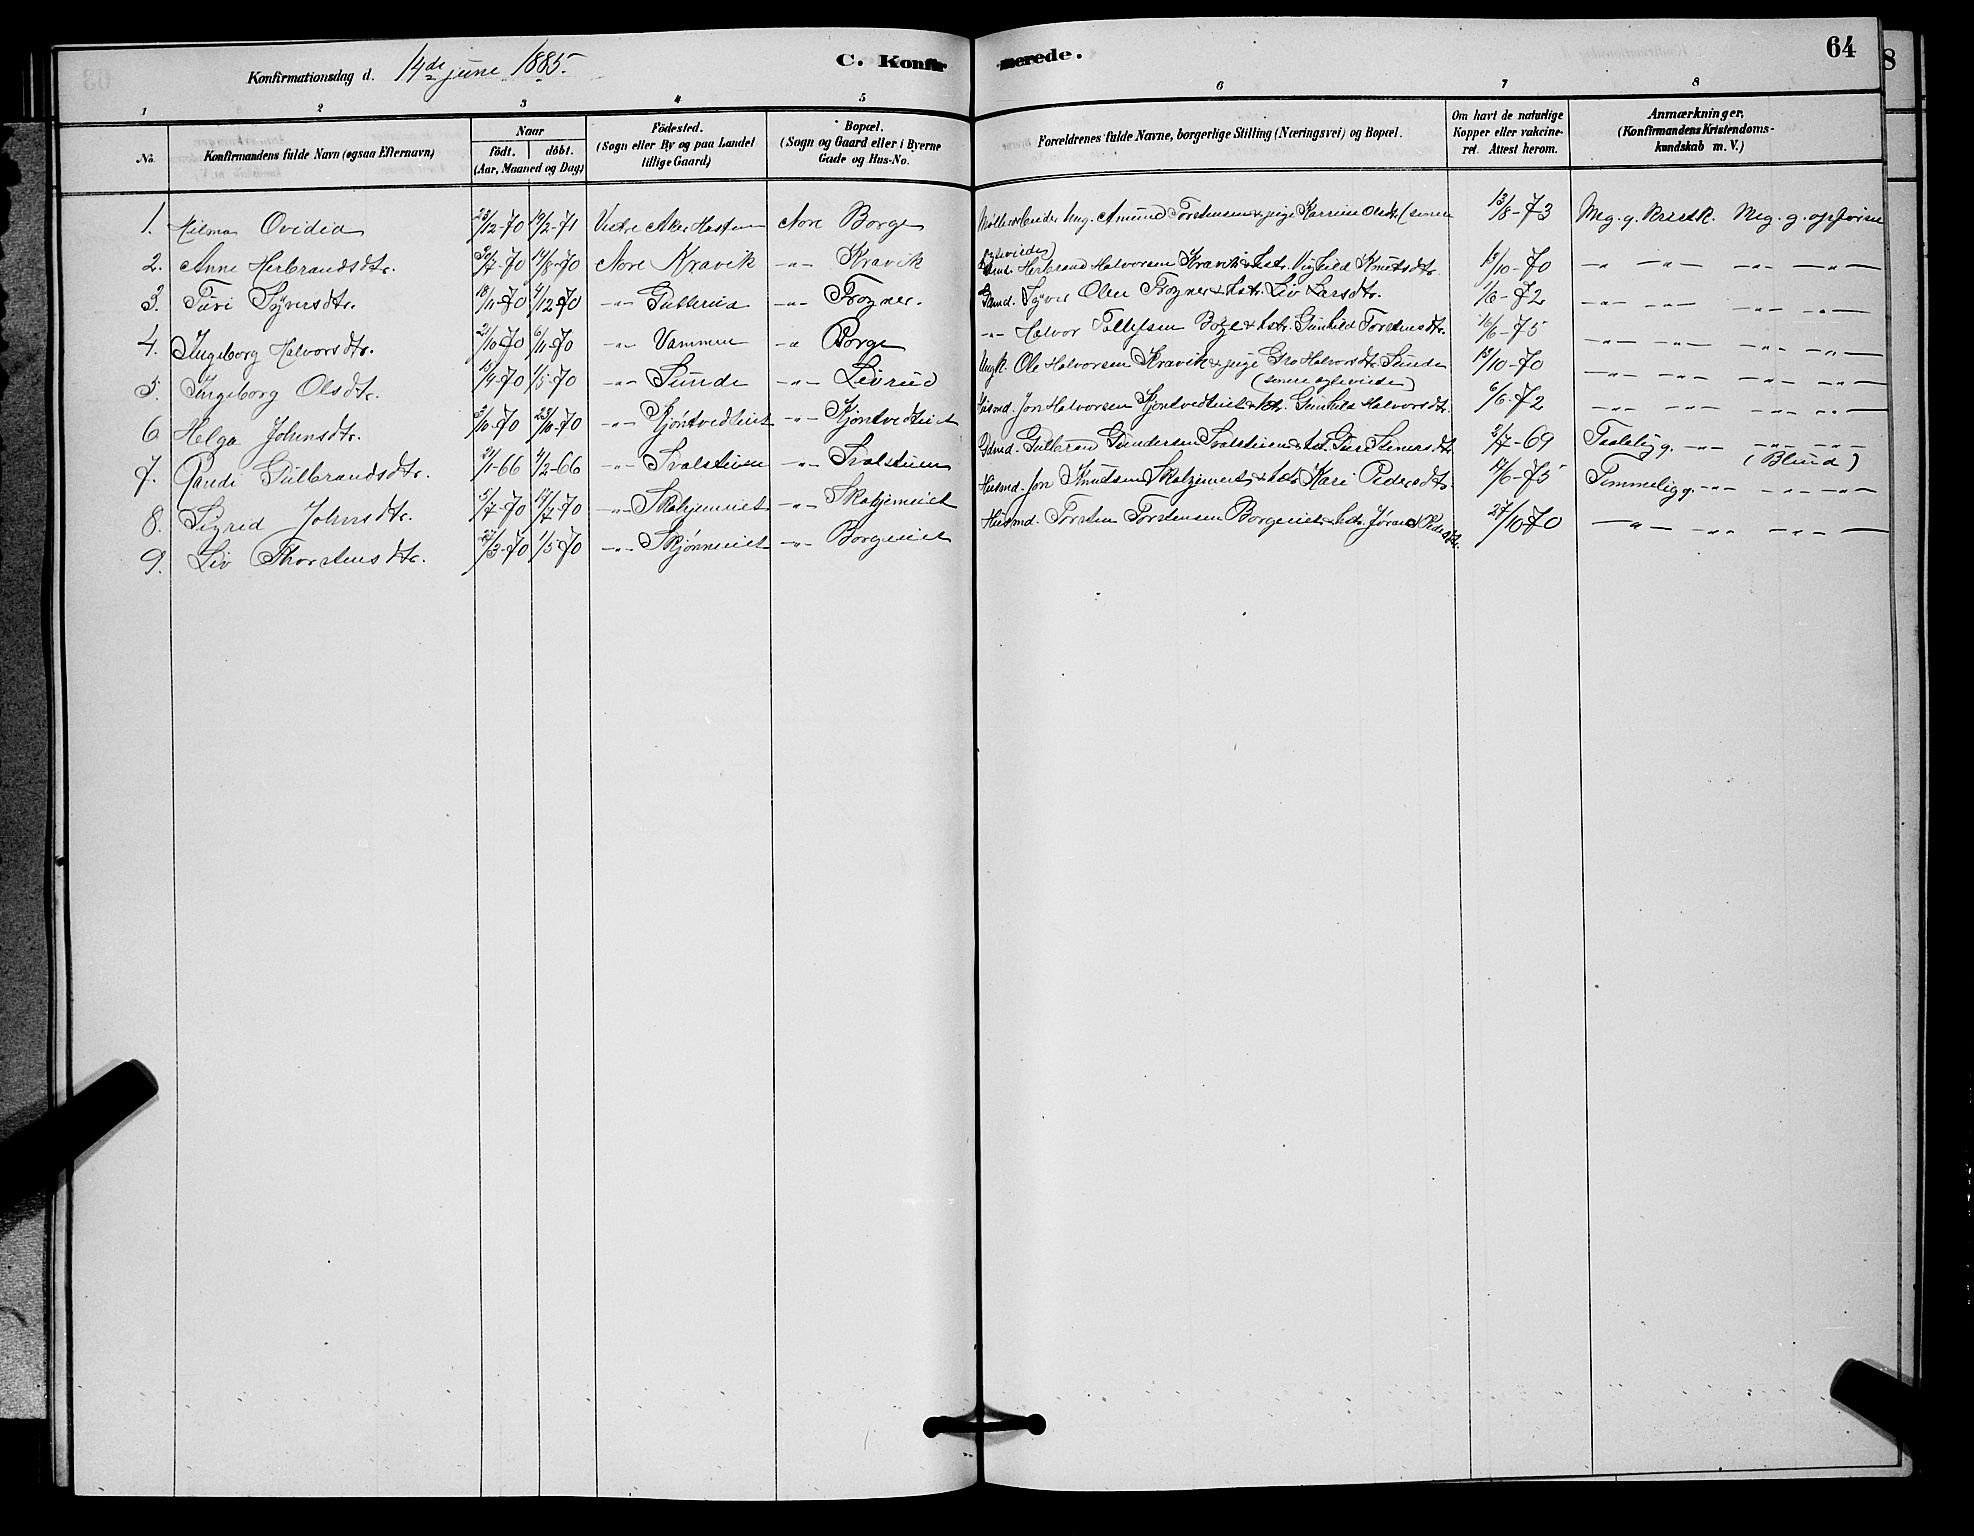 Konfirmationsdag d. 14de june 1885.
C. Konfirmerede.
64
8
1 2 3 4 5 6 7 8
No. Konfirmandens fulde Navn (ogsaa Efternavn)
Naar
födt. döbt.
(Aar, Maaned og Dag)
Födested.
(Sogn eller By og paa Landet
tillige Gaard)
Bopæl.
(Sogn og Gaard eller i Byerne
Gade og Hus-No.
Forældrenes fulde Navne, borgerlige Stilling (Næringsvei) og Bopæl.
Om havt de naturlige
Kopper eller vakcine-
ret. Attest herom.
Anmærkninger.
(Konfirmandens Kristendoms-
kundskab m. V.)
1. Hilma Ovidia 23/12-70 19/2-71 Vestre Aker Nore Borge Ung. Amund Torstensen & pige Karrine Olsdtr. (senere 13/8-73 Meg. g. Kristk. Meg. g. opförsel
ægteviede)
2. Anne Herbrandsdtr. 30/7-70 14/8-70 Nore Kravik -"- Kravik Herbrand Halvorsen Kravik & hstr. Vighild Knutsdtr. 13/10-70 -"- -"- -"- -"-
3. Turi Syversdtr. 18/11-70 4/12-70 -"- Gulterud -"- Frogner. Gamd. Syver Olsen Frogner & hstr. Liv Larsdtr. 1/6-72 -"- -"- -"- -"-
4. Ingeborg Halvorsdtr. 21/10-70 6/11-70 -"- Vammen -"- Borge -"- Halvor Tollefsen Borge & hstr. Gunhild Torstensdtr. 16/6-75 -"- -"- -"- -"-
5. Ingeborg Olsdtr. 13/4-70 1/5-70 -"- Sunde -"- Livrud Ungk. Ole Halvorsen Kravik & pige Gro Halvorsdtr. Sunde 13/10-70 -"- -"- -"- -"-
(senere ægteviede)
6. Helga Johnsdtr. 3/10-70 23/10-70 -"- Kjöntvedteiet -"- Kjöntvedteiet Husmd. Jon Halvorsen Kjöntvedteiet & hstr. Gunhild Halvorsdtr. 6/6-72 -"- -"- -"- -"-
7. Randi Gulbrandsdtr. 21/1-66 4/2-66 -"- Svalstuen -"- Svalstuen Gdmd. Gulbrand Gundersen Svalstuen & hst. Guri Stenersdtr. 2/7-69 Taalelig g. -"- -"- -"-
(Blind)
8. Sigrid Johnsdtr. 5/7-70 17/7-70 -"- Skatjemeiet -"- Skatjemeiet Husmd. Jon Knudsen Skatjemeiet & hstr. Kari Pedersdtr. 17/6-75 Temmelig g. -"- -"- -"-
9. Liv Thorstensdtr. 27/3-70 1/5-70 -"- Skjönneiet -"- Borgeeiet Husmd. Torsten Torstensen Borgeeiet & hstr. Jörand Pedersdtr. 27/10-70 -"- -"- -"- -"-